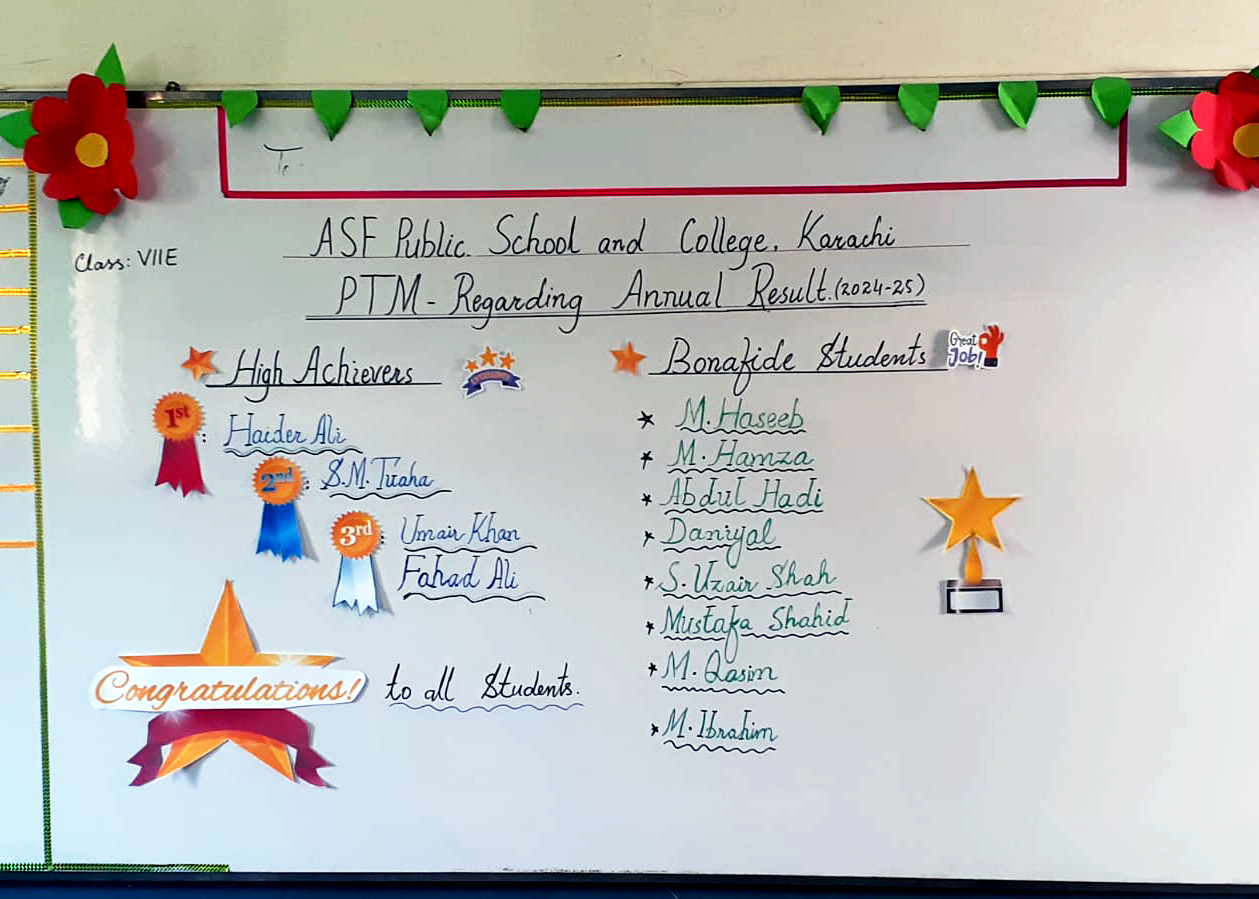 To
Class: VIIE
ASF Public School and College, Karachi
PTM - Regarding Annual Result. (2024-25)
High Achievers
1st : Haider Ali
2nd : S.M. Tuaha
3rd : Umair Khan
Fahad Ali
Congratulations! to all Students.
Bonafide Students
Great Job!
M. Haseeb
M. Hamza
Abdul Hadi
Daniyal
S. Uzair Shah
Mustafa Shahid
M. Qasim
M. Ibrahim